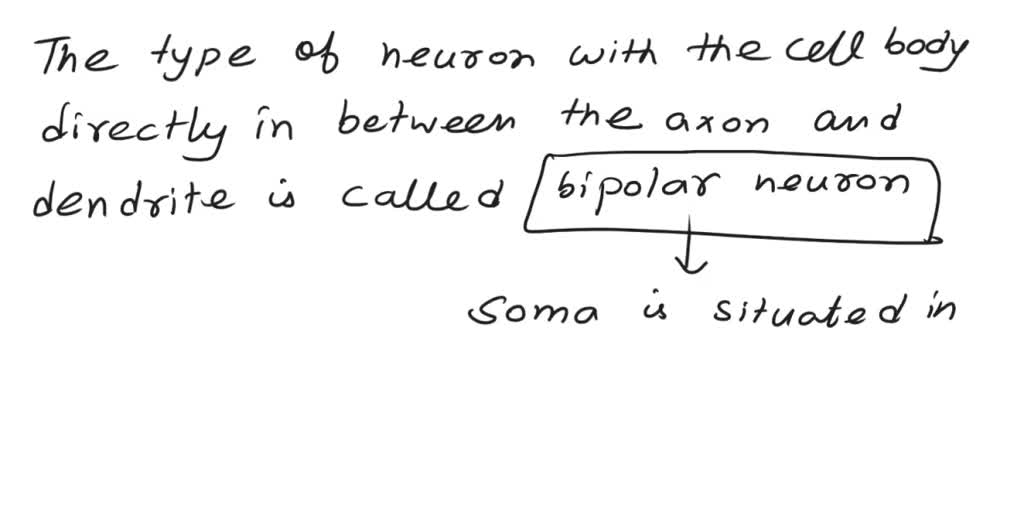 The type of neuron with the cell body
directly in between the axon and
dendrite is called bipolar neuron
Soma is situated in